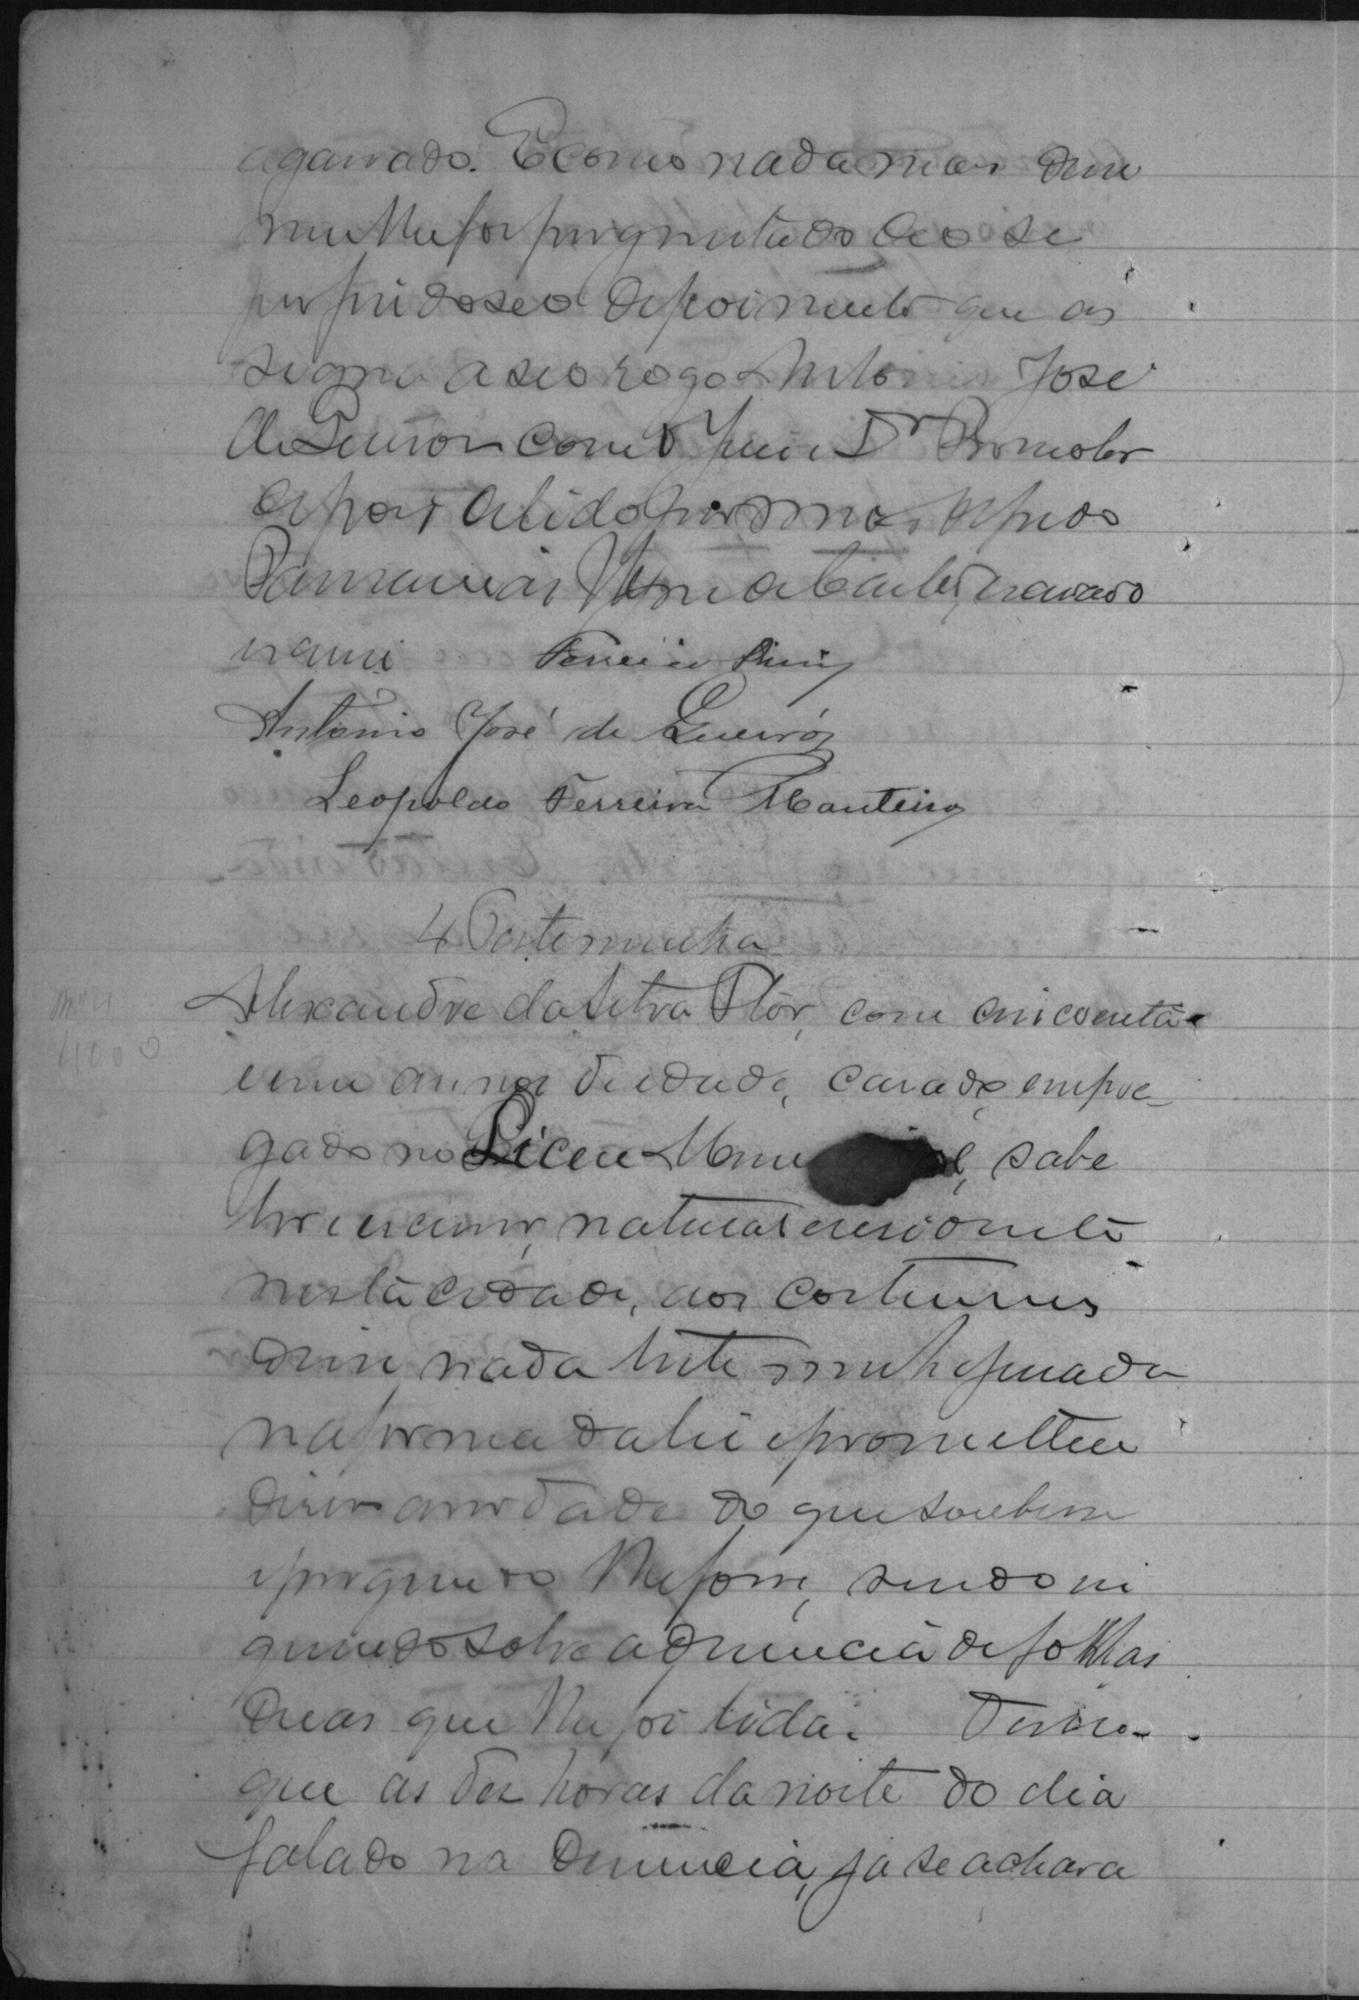 agarrado. E como nada mais disse
nem lhe foi perguntado deo se
por findo seo depoimento que as
signa a seo rogo Antonio José
de Queiros com o Juiz e Dr Promotor
depois de lido por mim
escrivão
escrevi Ferreira Diniz
Antonio José de Queiróz
Leopoldo Ferreira Monteiro
4 Testemunha
Alexandre da Silva Flôr, com cincoenta
e um annos de edade, casado, empre-
gado no Liceu Mun l, sabe
ler e escrever, natural e residente
nesta cidade, aos costumes
disse nada testemunha jurada
na forma da lei e prometteu
dizer a verdade do que soubesse
e perguntado lhe fosse, sendo in
querido sobre a denuncia de folhas
duas que lhe foi lida. Disse
que as dez horas da noite do dia
falado na denuncia, ja se achava